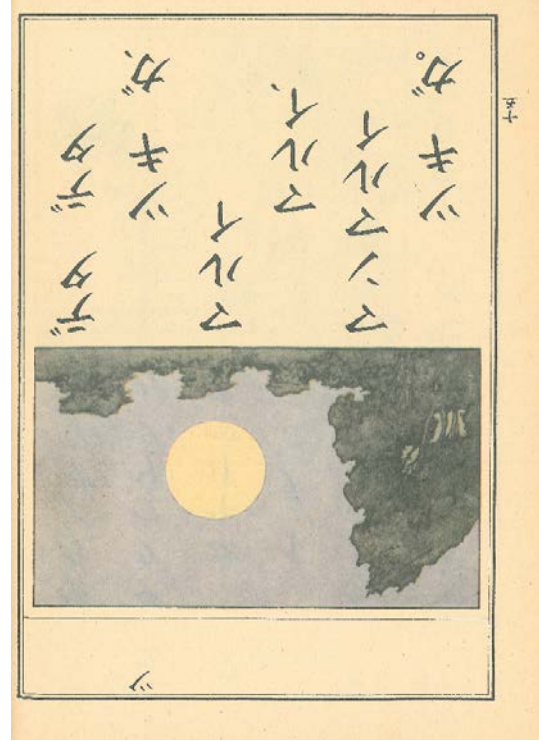 ツ
デタ デタ
ツキ ガ、
マルイ
マルイ、
マンマルイ
ツキ ガ。
十五